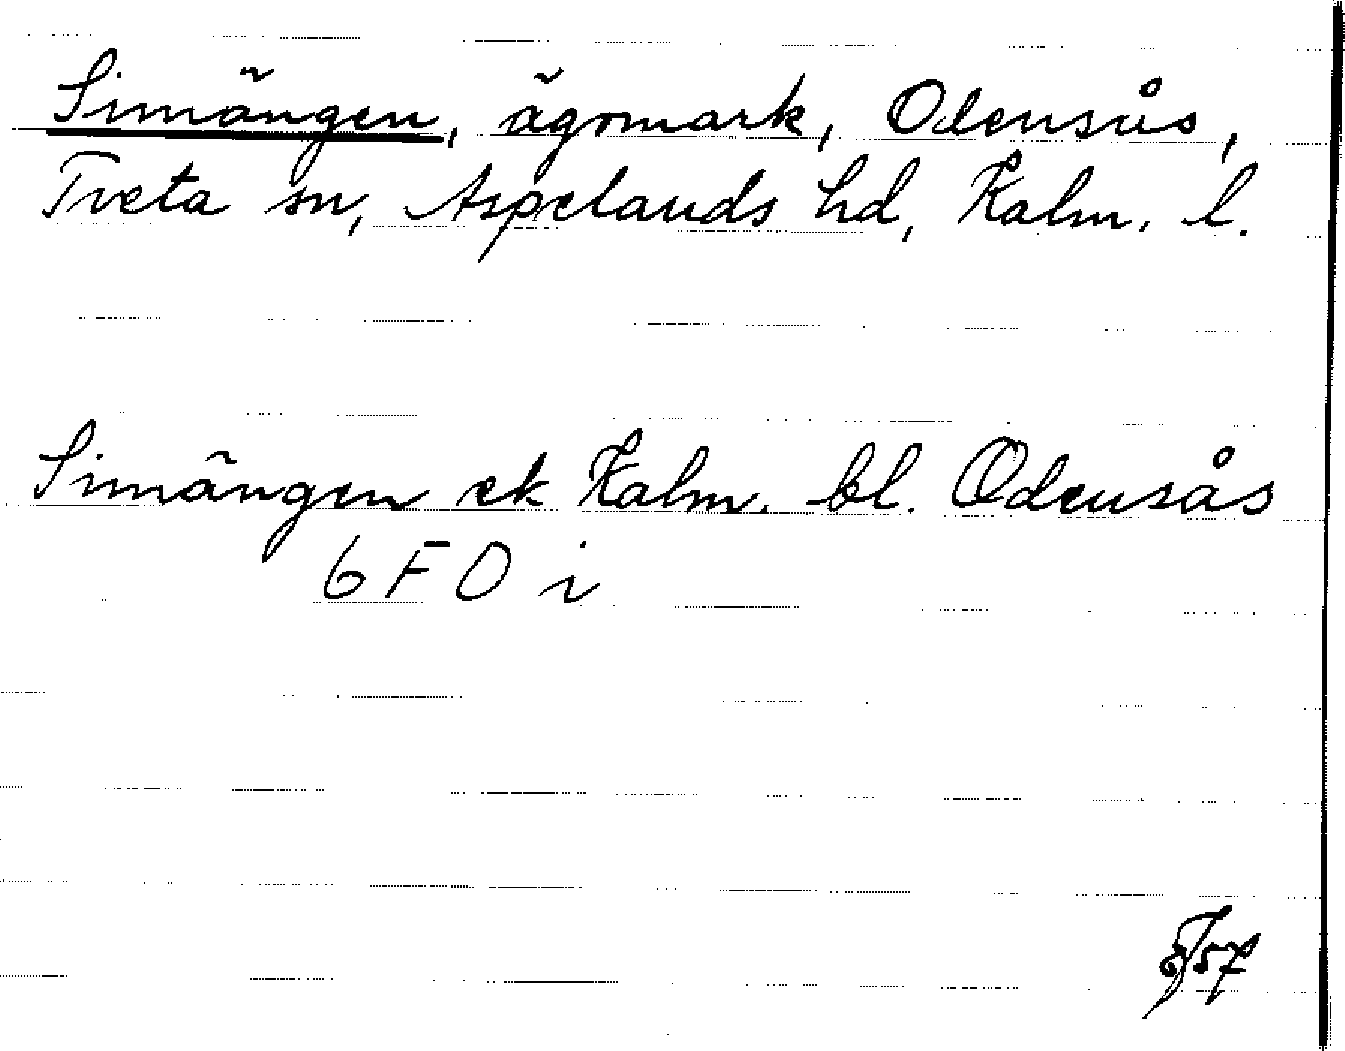 Simängen, ägomark, Odensås,
Tveta sn, Aspelands hd, Kalm. l.
Simängen ek Kalm. bl. Odensås
6 F O i
57